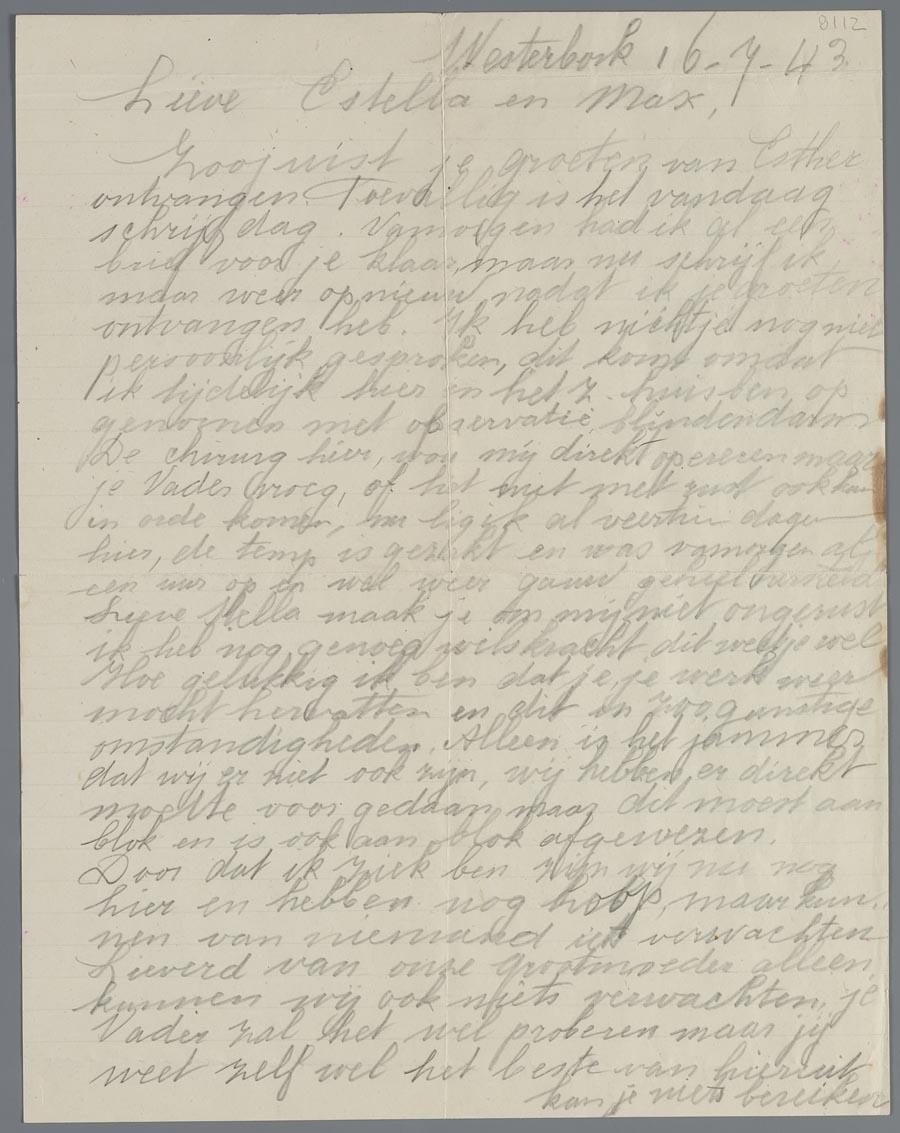 8112
Westerbork 16-7-43
Lieve Estella en Max,
Zoojuist je groeten van Esther
ontvangen Toevallig is het vandaag
schrijfdag. Vamorgen had ik al een
brief voor je klaar, maar nu schrijf ik
maar weer opnieuw nadat ik je groeten
ontvangen heb. Ik heb nichtje nog niet
persoonlijk gesproken, dit komt omdat
ik tijdelijk hier in het z. huis ben op
genomen met observatie, blindendarm
De chirurg hier, wou mij direkt opereren maar
je Vader vroeg, of het niet met rust ook kan
in orde komen, nu lig ik al veertien dagen
hier, de temp is gezakt en was vamorgen al
een uur op en wel weer gauw geheel hersteld
Lieve Stella maak je om mij niet ongerust
ik heb nog genoeg wilskracht dit weet je wel
Hoe gelukkig ik ben dat je, je werk weer
mocht hervatten en dit in zoo gunstige
omstandigheden. Alleen is het jammer
dat wij er niet ook zijn, wij hebben er direkt
moeite voor gedaan maar dit moest aan
blok en is ook aan blok afgewezen.
Door dat ik ziek ben zijn wij nu nog
hier en hebben nog hoop, maar kun-
nen van niemand iets verwachten
Lieverd van onze Grootmoeder alleen
kunnen wij ook niets verwachten, je
Vader zal het wel proberen maar jij
weet zelf wel het beste van hieruit
kan je niets bereiken